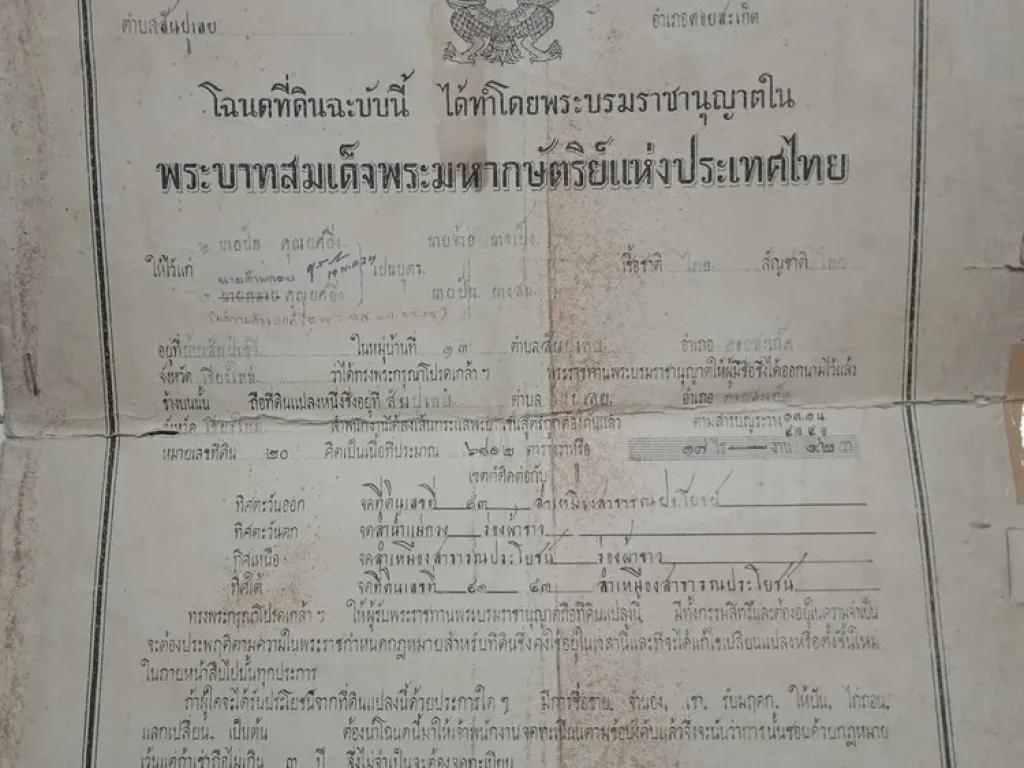 ตำบลสันปูเลย อำเภอดอยสะเก็ด
โฉนดที่ดินฉะบับนี้ ได้ทำโดยพระบรมราชานุญาตใน
พระบาทสมเด็จพระมหากษัตริย์แห่งประเทศไทย
คุณยศยิ่ง
ให้ไว้แก่ เป็นบุตร์ เชื้อชาติ ไทย สัญชาติ ไทย
คุณยศยิ่ง
อยู่ที่ ในหมู่บ้านที่ ๑๓ ตำบล สันปูเลย อำเภอ ดอยสะเก็ด
จังหวัด เชียงใหม่ ว่าได้ทรงพระกรุณาโปรดเกล้า ฯ พระราชทานพระบรมราชานุญาตให้ผู้มีชื่อซึ่งได้ออกนามไว้แล้ว
ข้างบนนั้น ถือที่ดินแปลงหนึ่งซึ่งอยู่ที่ สันปูเลย ตำบล สันปูเลย อำเภอ ดอยสะเก็ด
จังหวัด เชียงใหม่ ถูกต้องกันแล้ว ตามสารบัญระวาง
หมายเลขที่ดิน ๒๐ คิดเป็นเนื้อที่ประมาณ ๖๙๑๒ ตารางวาหรือ ๑๗ ไร่ — งาน ๑๒ วา
เขตต์ติดต่อกับ
ทิศตะวันออก จดที่ดินเลขที่ ๕๓ ลำเหมืองสาธารณประโยชน์
ทิศตะวันตก จดลำน้ำแม่กวง ร่องผ้าขาว
ทิศเหนือ จดลำเหมืองสาธารณประโยชน์ ร่องผ้าขาว
ทิศใต้ จดที่ดินเลขที่ ลำเหมืองสาธารณประโยชน์
ทรงพระกรุณาโปรดเกล้า ฯ ให้ผู้รับพระราชทานพระบรมราชานุญาตถือที่ดินแปลงนี้ มีทั้งกรรมสิทธิ์และต้องอยู่ในความจำเป็น
จะต้องประพฤติตามความในพระราชกำหนดกฎหมายสำหรับที่ดินซึ่งคงใช้อยู่ในเวลานี้และที่จะได้แก้ไขเปลี่ยนแปลงหรือตั้งขึ้นใหม่
ในภายหน้าสืบไปนั้นทุกประการ
ถ้าผู้ใดจะได้รับประโยชน์จากที่ดินแปลงนี้ด้วยประการใด ๆ มีการซื้อขาย, จำนอง, เช่า, รับมฤดก, ให้ปัน, ไถ่ถอน,
แลกเปลี่ยน, เป็นต้น ต้องนำโฉนดนี้มาให้เจ้าพนักงานจดทะเบียนตามข้อบังคับแล้วจึ่งจะนับว่าการนั้นชอบด้วยกฎหมาย
เว้นแต่ถ้าเช่าถือไม่เกิน ๓ ปี จึ่งไม่จำเป็นจะต้องจดทะเบียน